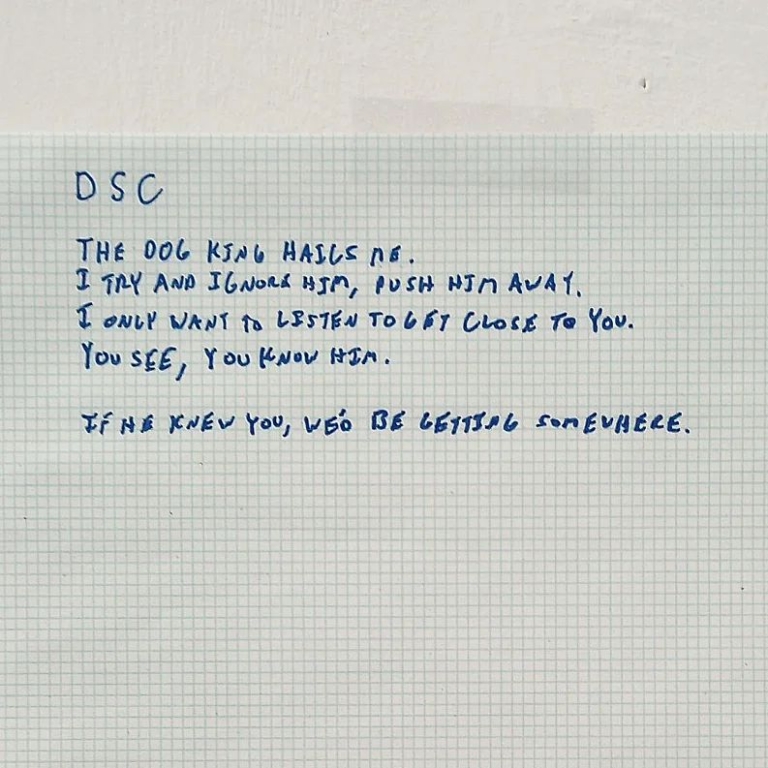 DSC
THE DOG KING HAILS ME.
I TRY AND IGNORE HIM, PUSH HIM AWAY.
I ONLY WANT TO LISTEN TO GET CLOSE TO YOU.
YOU SEE, YOU KNOW HIM.
IF HE KNEW YOU, WE'D BE GETTING SOMEWHERE.